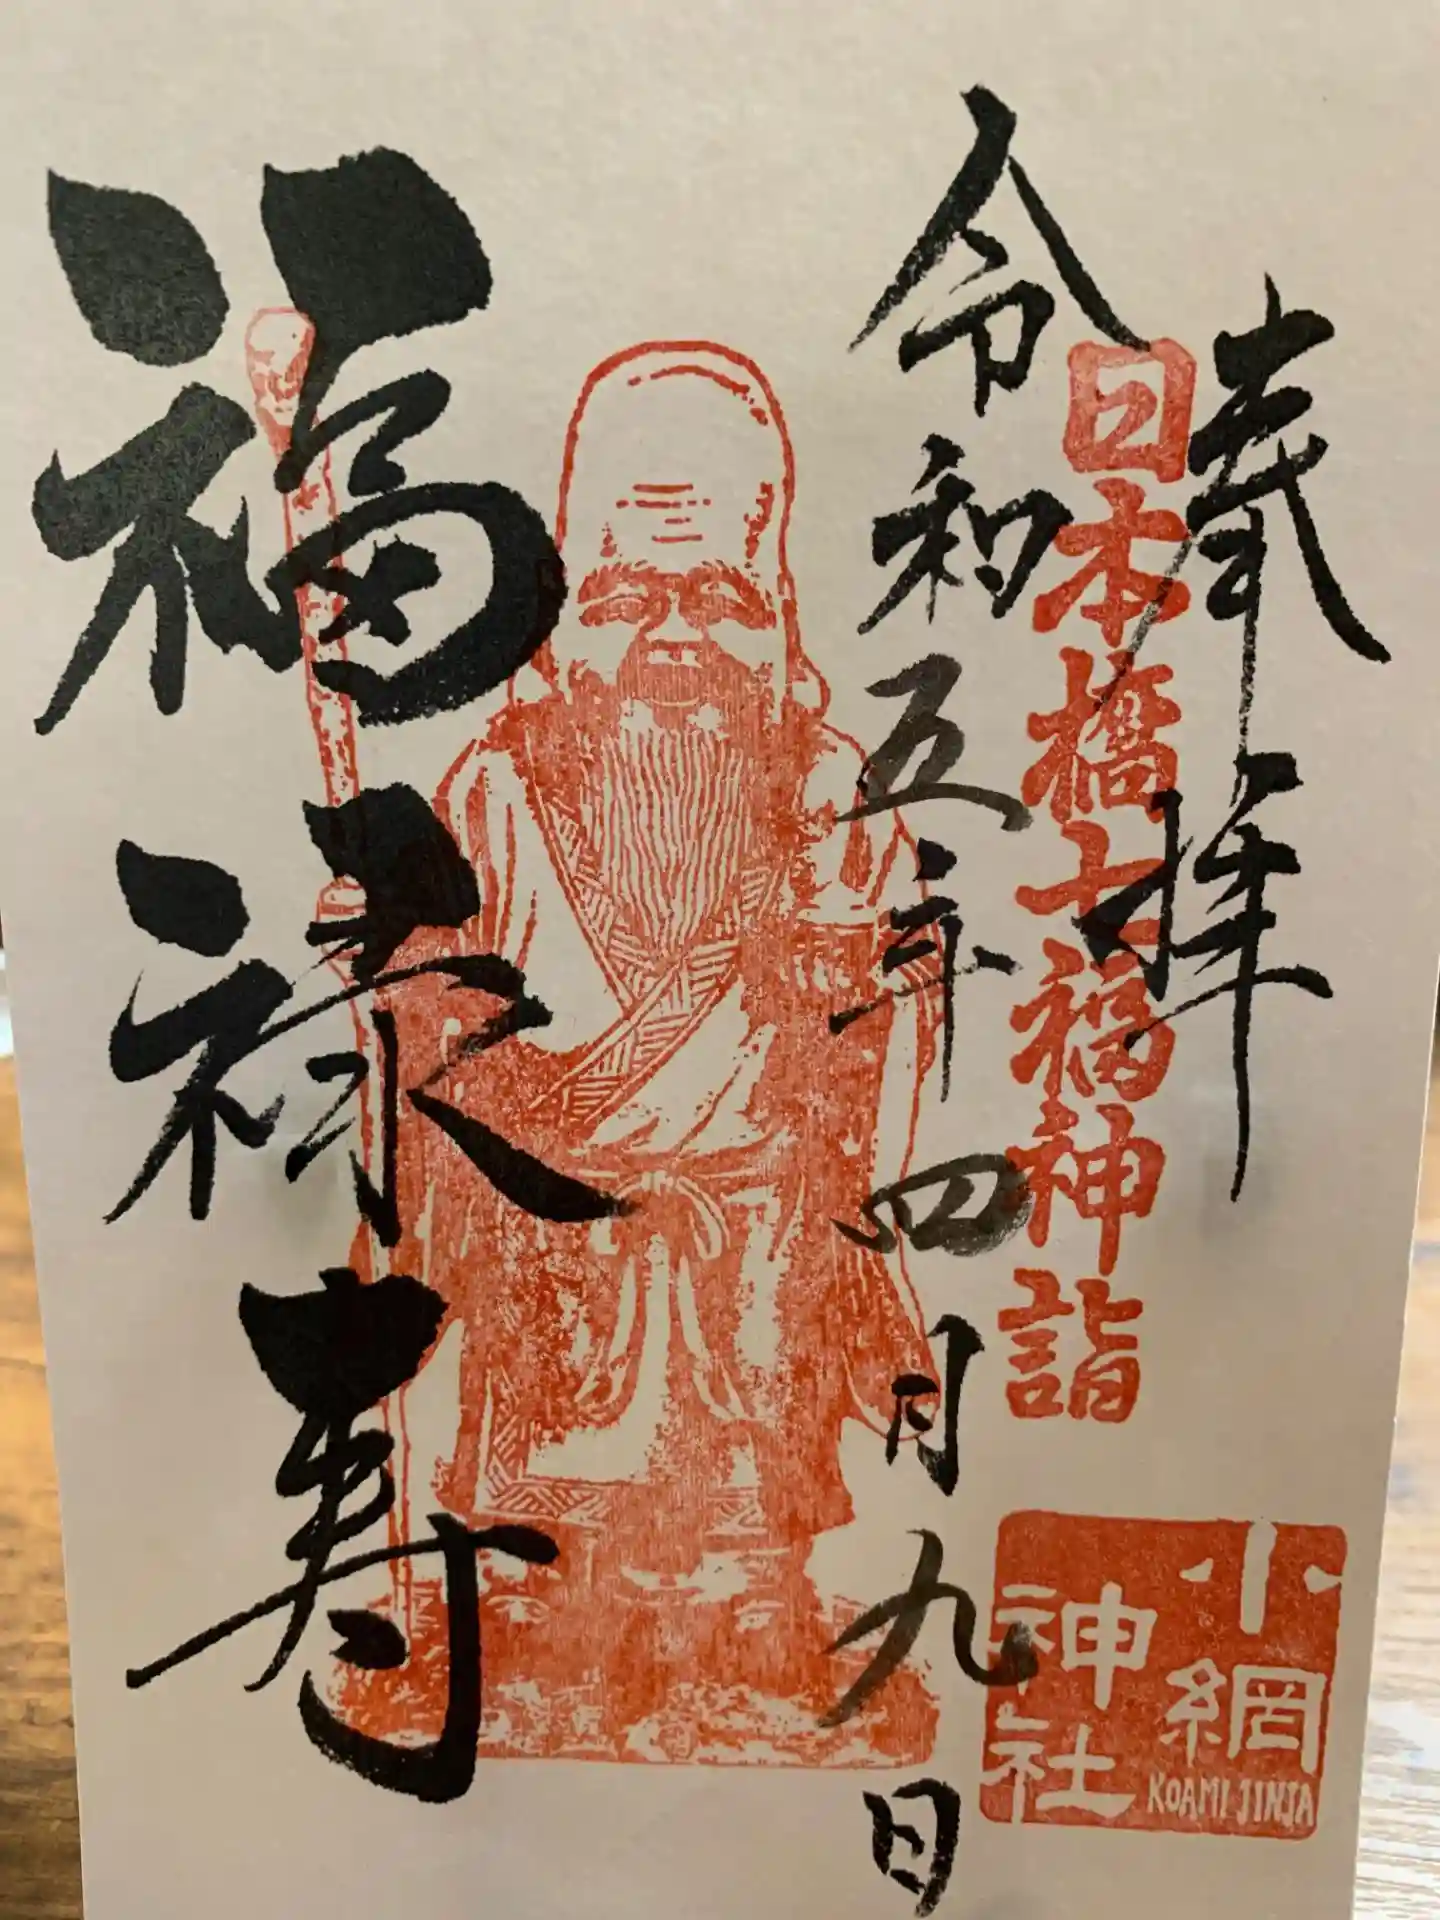 奉拝
日本橋七福神詣
小網
神社
KOAMI JINJA
令和五年四月九日
福禄寿